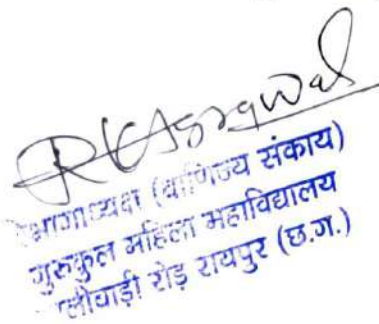 RKAgrawal
विभागाध्यक्ष (वाणिज्य संकाय)
गुरुकुल महिला महाविद्यालय
रोड़ रायपुर (छ.ग.)